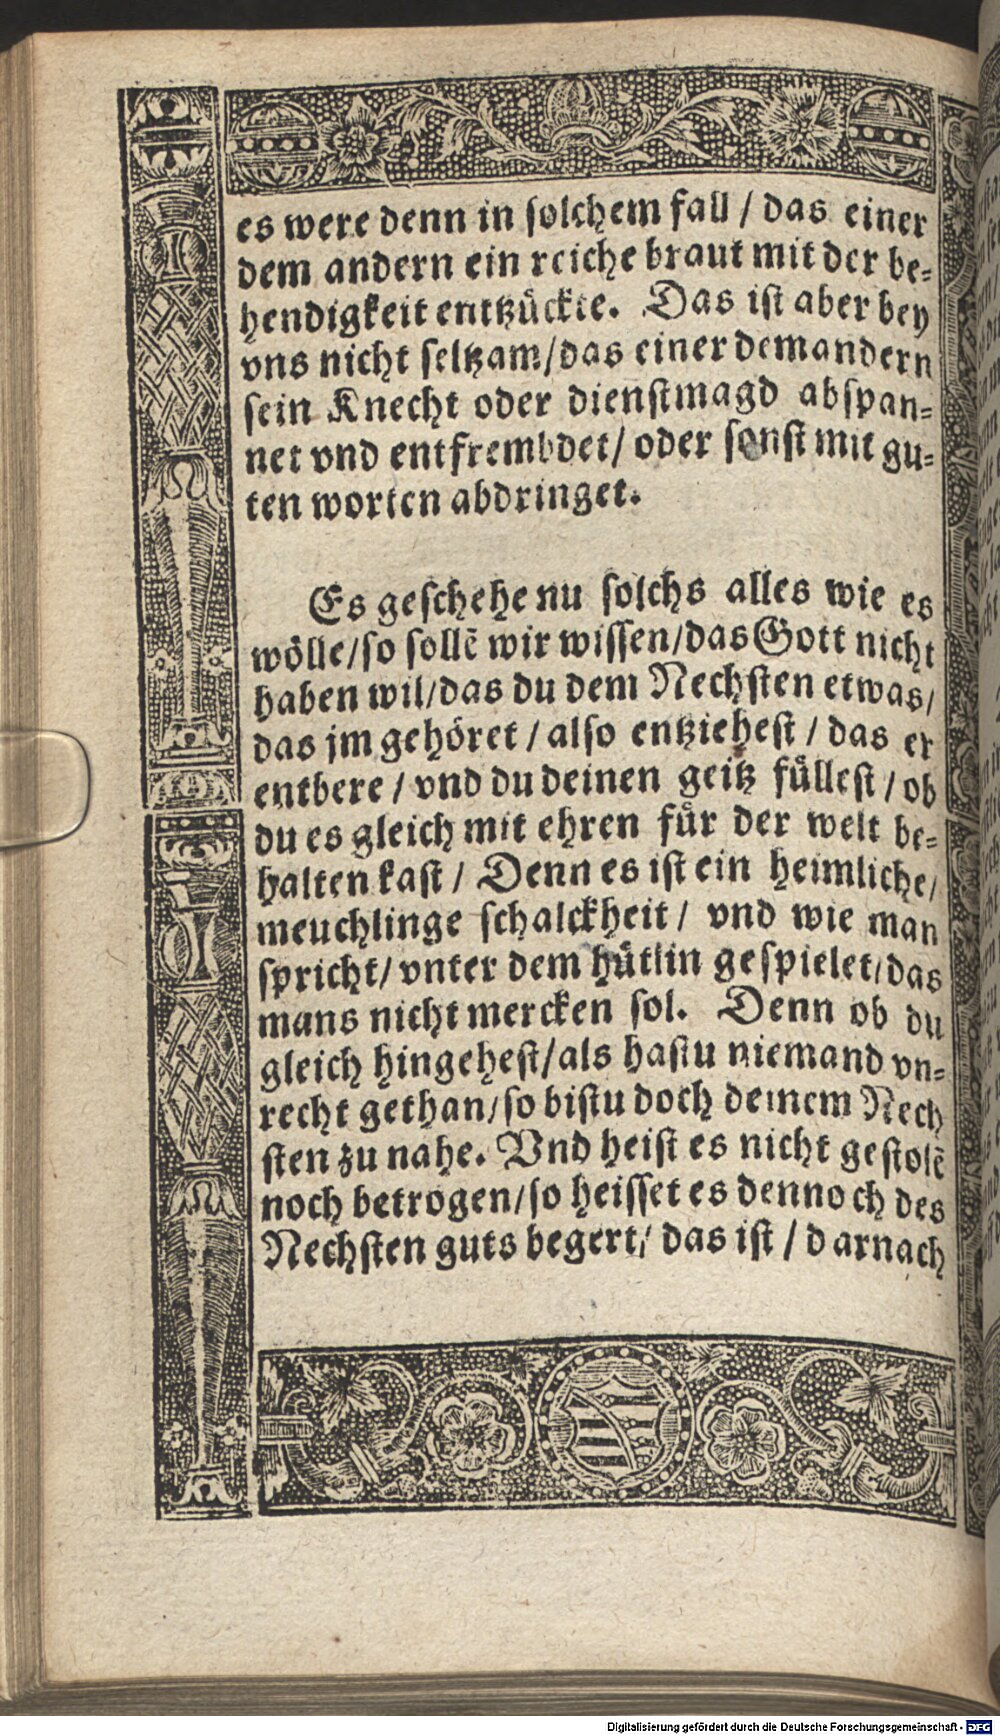 es were denn in solchem fall / das einer
dem andern ein reiche braut mit der be⸗
hendigkeit entzückte. Das ist aber bey
vns nicht seltzam/das einer dem andern
sein Knecht oder dienstmagd abspan⸗
net vnd entfrembdet/ oder sonst mit gu⸗
ten worten abdringet.
Es geschehe nu solchs alles wie es
wölle/so sollē wir wissen/das Gott nicht
haben wil/das du dem Nechsten etwas/
das jm gehöret / also entziehest / das er
entbere / vnd du deinen geitz füllest / ob
du es gleich mit ehren für der welt be⸗
halten kast / Denn es ist ein heimliche/
meuchlinge schalckheit / vnd wie man
spricht/ vnter dem hütlin gespielet/das
mans nicht mercken sol. Denn ob du
gleich hingehest/als hastu niemand vn⸗
recht gethan/so bistu doch deinem Nech
sten zu nahe. Vnd heist es nicht gestolē
noch betrogen/so heisset es dennoch des
Nechsten guts begert/ das ist / darnach
Digitalisierung gefördert durch die Deutsche Forschungsgemeinschaft - DFG